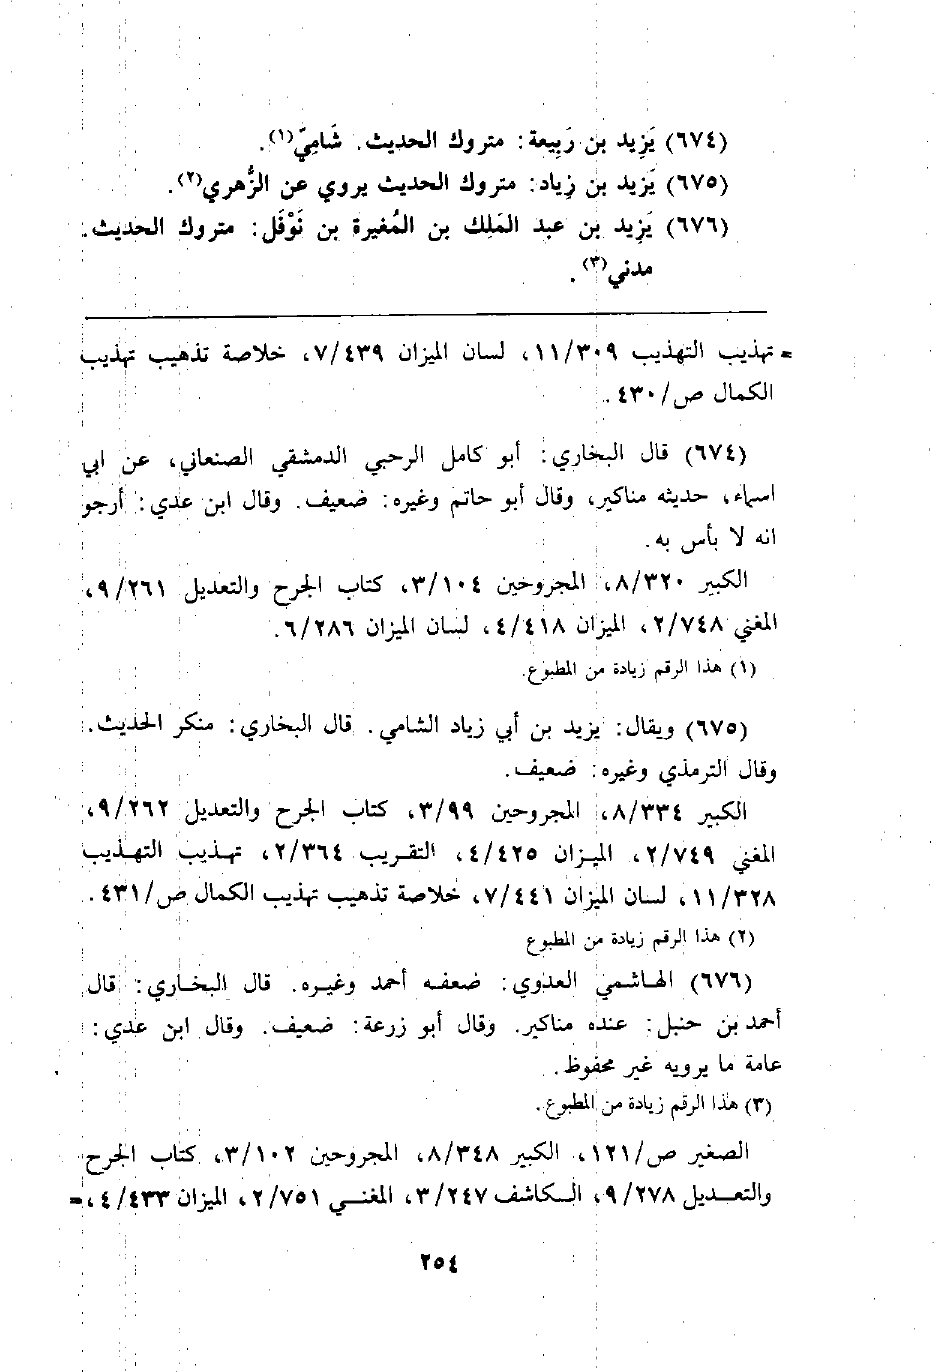 (٦٧٤) يَزِيد بن رَبِيعة: متروك الحديث. شَامِيّ(١).
(٦٧٥) يَزِيد بن زِياد: متروك الحديث يروي عن الزُّهري(٢).
(٦٧٦) يَزِيد بن عبد المَلِك بن المُغيرة بن نَوْفَل: متروك الحديث.
مدني(٣).
= تهذيب التهذيب ١١/٣٠٩، لسان الميزان ٧/٤٣٩، خلاصة تذهيب تهذيب
الكمال ص/٤٣٠.
(٦٧٤) قال البخاري: أبو كامل الرحبي الدمشقي الصنعاني، عن ابي
اسماء، حديثه مناكير، وقال أبو حاتم وغيره: ضعيف. وقال ابن عدي: أرجو
انه لا بأس به.
الكبير ٨/٣٢٠، المجروحين ٣/١٠٤، كتاب الجرح والتعديل ٩/٢٦١،
المغني ٢/٧٤٨، الميزان ٤/٤١٨، لسان الميزان ٦/٢٨٦.
(١) هذا الرقم زيادة من المطبوع.
(٦٧٥) ويقال: يزيد بن أبي زياد الشامي. قال البخاري: منكر الحديث.
وقال الترمذي وغيره: ضعيف.
الكبير ٨/٣٣٤، المجروحين ٣/٩٩، كتاب الجرح والتعديل ٩/٢٦٢،
المغني ٢/٧٤٩، الميزان ٤/٤٢٥، التقريب ٢/٣٦٤، تهذيب التهذيب
١١/٣٢٨، لسان الميزان ٧/٤٤١، خلاصة تذهيب تهذيب الكمال ص/٤٣١.
(٢) هذا الرقم زيادة من المطبوع
(٦٧٦) الهاشمي العدوي: ضعفه أحمد وغيره. قال البخاري: قال
أحمد بن حنبل: عنده مناكير. وقال أبو زرعة: ضعيف. وقال ابن عدي:
عامة ما يرويه غير محفوظ.
(٣) هذا الرقم زيادة من المطبوع.
الصغير ص/١٢١، الكبير ٨/٣٤٨، المجروحين ٣/١٠٢، كتاب الجرح
والتعديل ٩/٢٧٨، الكاشف ٣/٢٤٧، المغني ٢/٧٥١، الميزان ٤/٤٣٣، =
٢٥٤